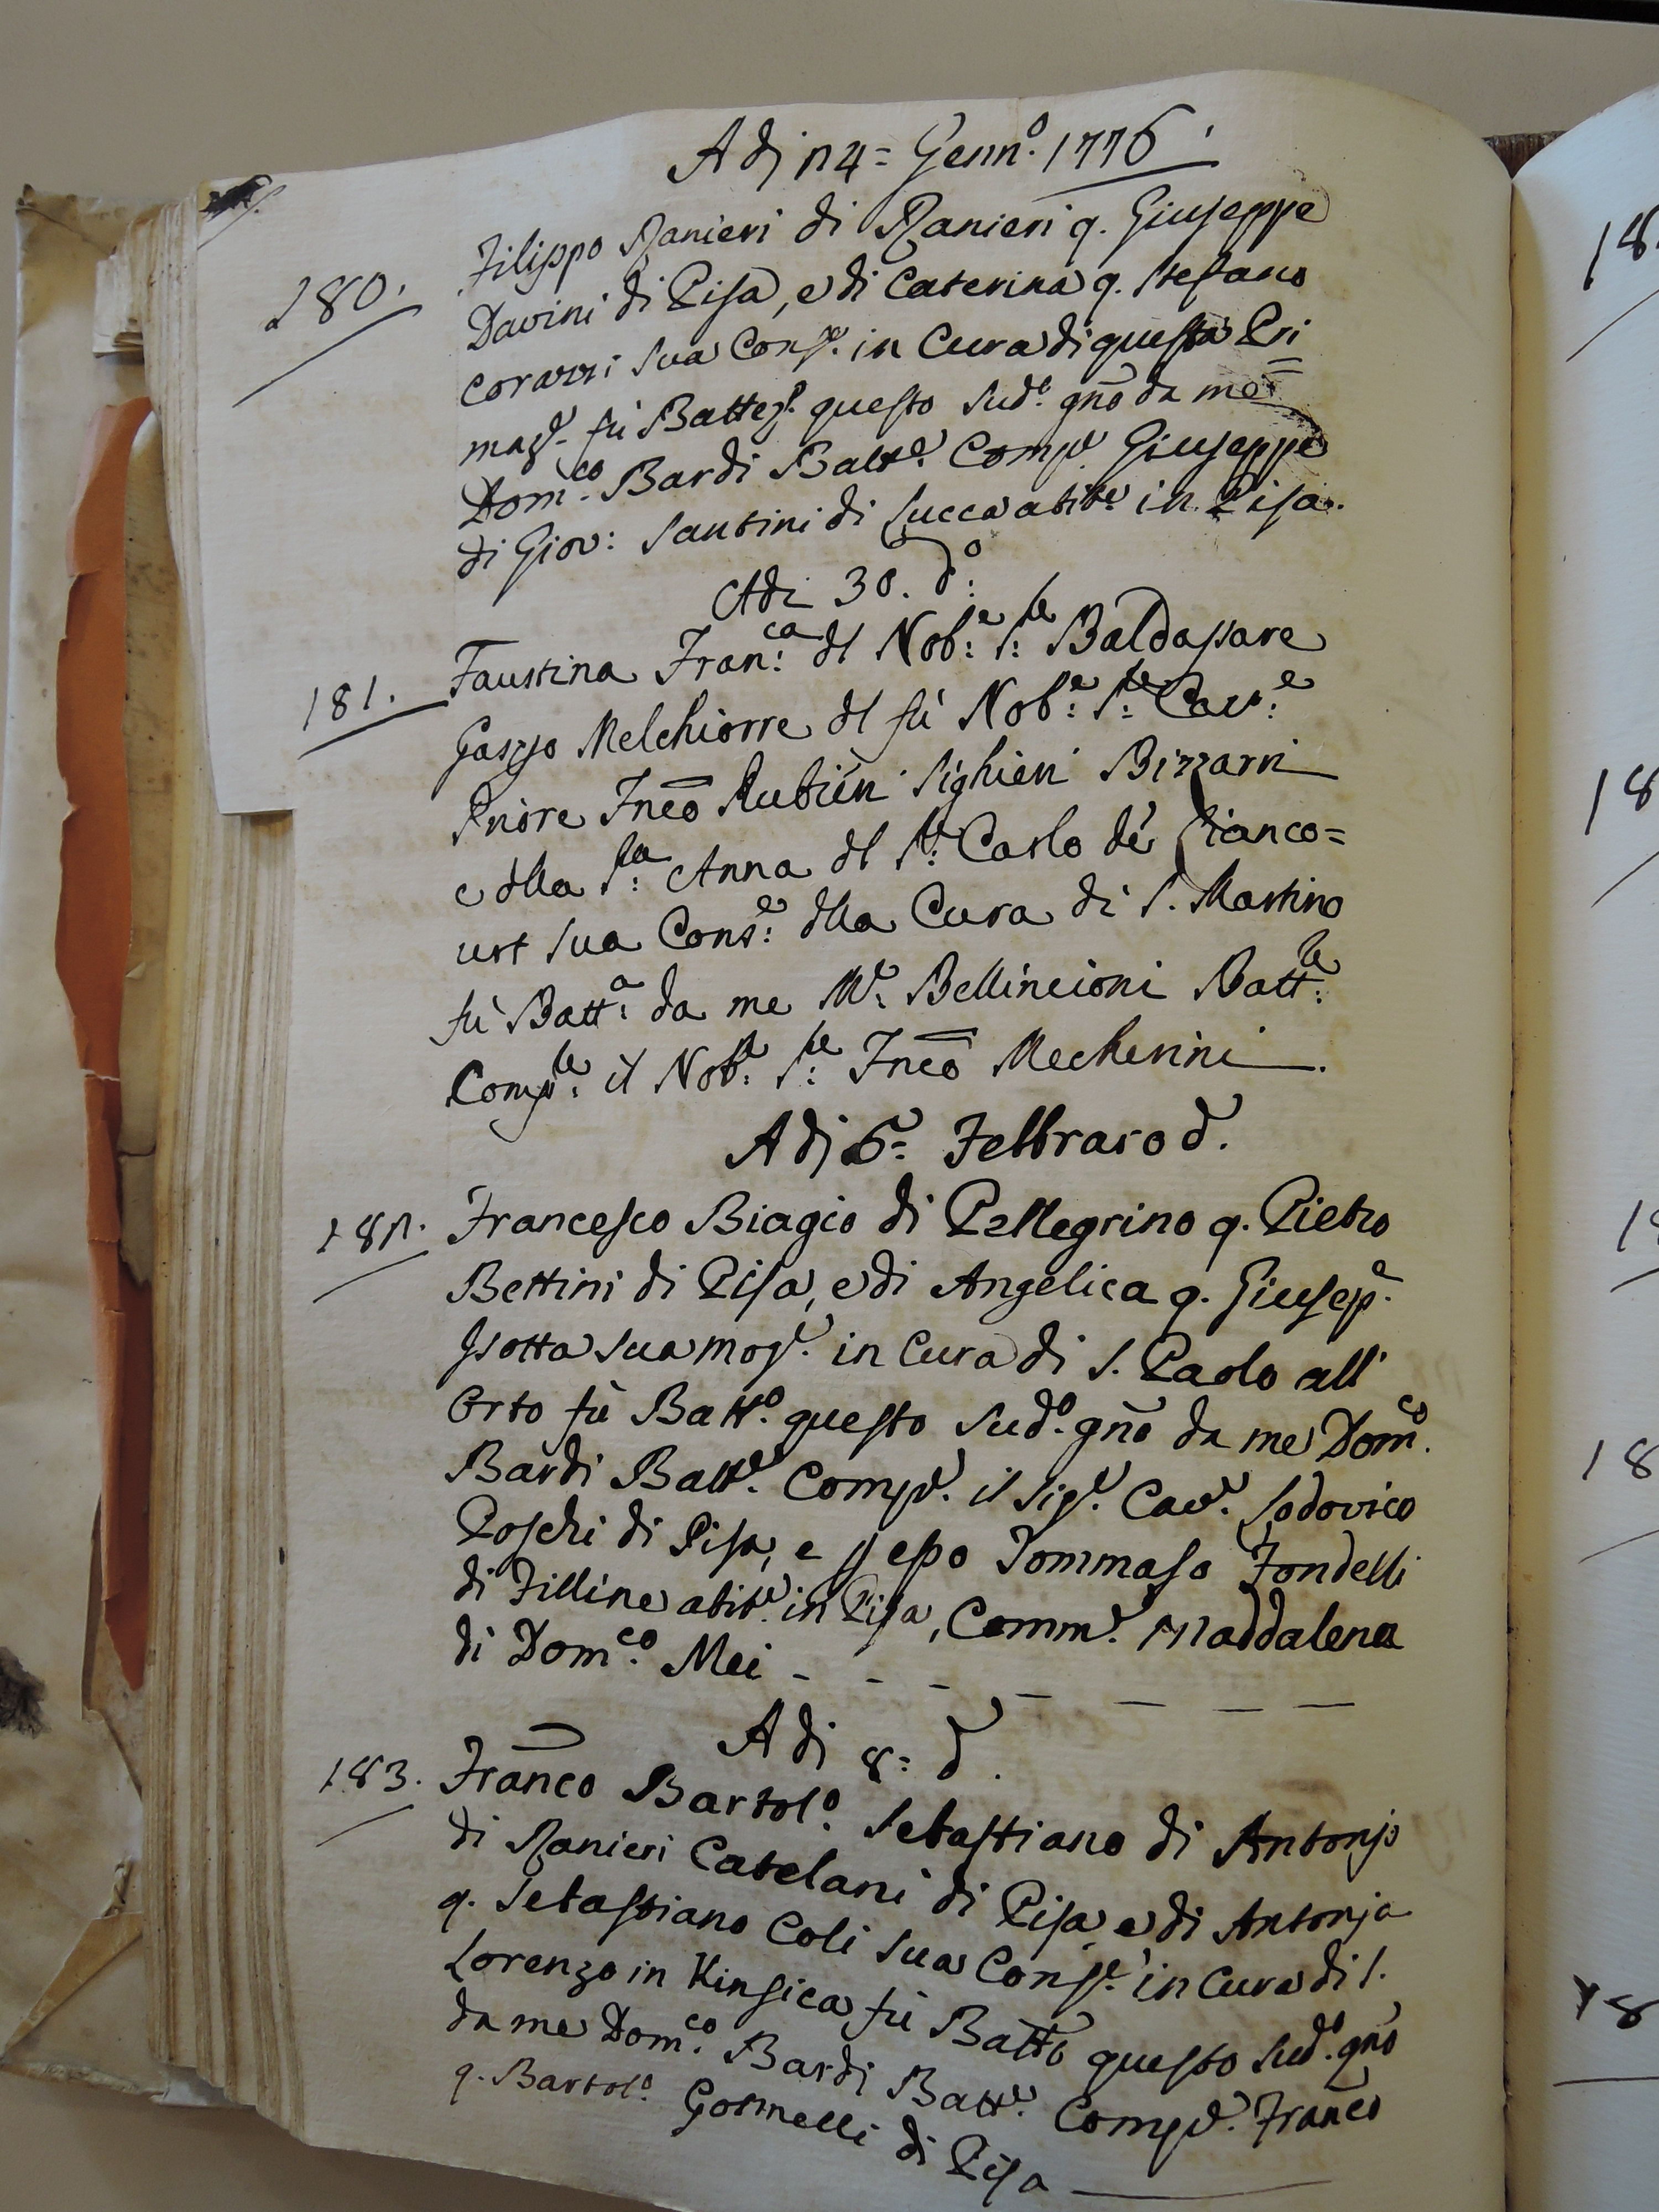 Adj 24 = Genn.o 1776.
180. Filippo Ranieri di Ranieri q. Giuseppe
Davini di Pisa, e di Caterina q. Stefano
Corazzi sua Cons.e in Cura di questa Pri
maz.e fù Battez.o questo sud.o gño da me
Dom.co Bardi Batt.e Comp.e Giuseppe
di Giov: Santini di Lucca abit.e in Pisa.
Adi 30. d.o
181. Faustina Fran:ca dl Nob:e S:re Baldassare
Gaspo Melchiorre dl fù Nob:e S:re Cav:e
Priore Fnco Rubieri Sighieri Bizzarri
e dlla S:ra Anna dl S:r Carlo de
urt sua Cons:e dlla Cura di S. Martino
fù Batt:a da me M:e Bellincioni Batt:re
Comp:re il Nob:e S:re Fnco Mecherini.
Adj 6= Febbraro d.
182. Francesco Biagio di Pellegrino q. Pietro
Bettini di Pisa, e di Angelica q. Giusep.e
Isotta sua mog.e in Cura di S. Paolo all'
Orto fù Batt.o questo sud.o gño da me Dom.co
Bardi Batt.e Comp.e il Sig.e Cav.e Lodovico
Poschi di Pisa, e p esso Tommaso Fondelli
di Filline abit.e in Pisa, Comm.e Maddalena
di Dom.co Mei - - - - - - -
Adi 8= d.
183. Franco Bartol.o Sebastiano di Antonjo
di Ranieri Catelani di Pisa e di Antonja
q. Sebastiano Coli sua Cons.e in Cura di S.
Lorenzo in Kinsica fù Batto questo sud.o gño
da me Dom.co Bardi Batt.e Comp.e Franco
q. Bartol.o di Pisa
18
18
18
18
18